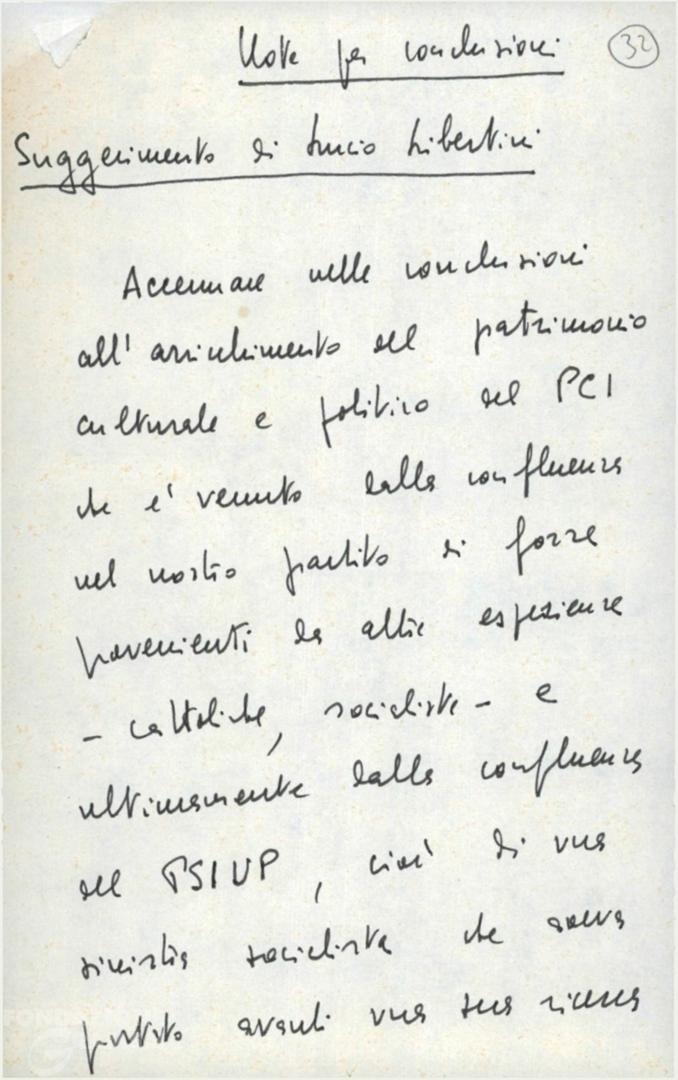 Note per conclusioni
32
Suggerimento di Lucio Libertini
Accennare nelle conclusioni
all'arricchimento del patrimonio
culturale e politico del PCI
che e' venuto dalla confluenza
nel nostro partito di forze
provenienti da altre esperienze
- cattoliche, socialiste - e
ultimamente dalla confluenza
del PSIUP, cioè di una
sinistra socialista che aveva
portato avanti una sua ricerca